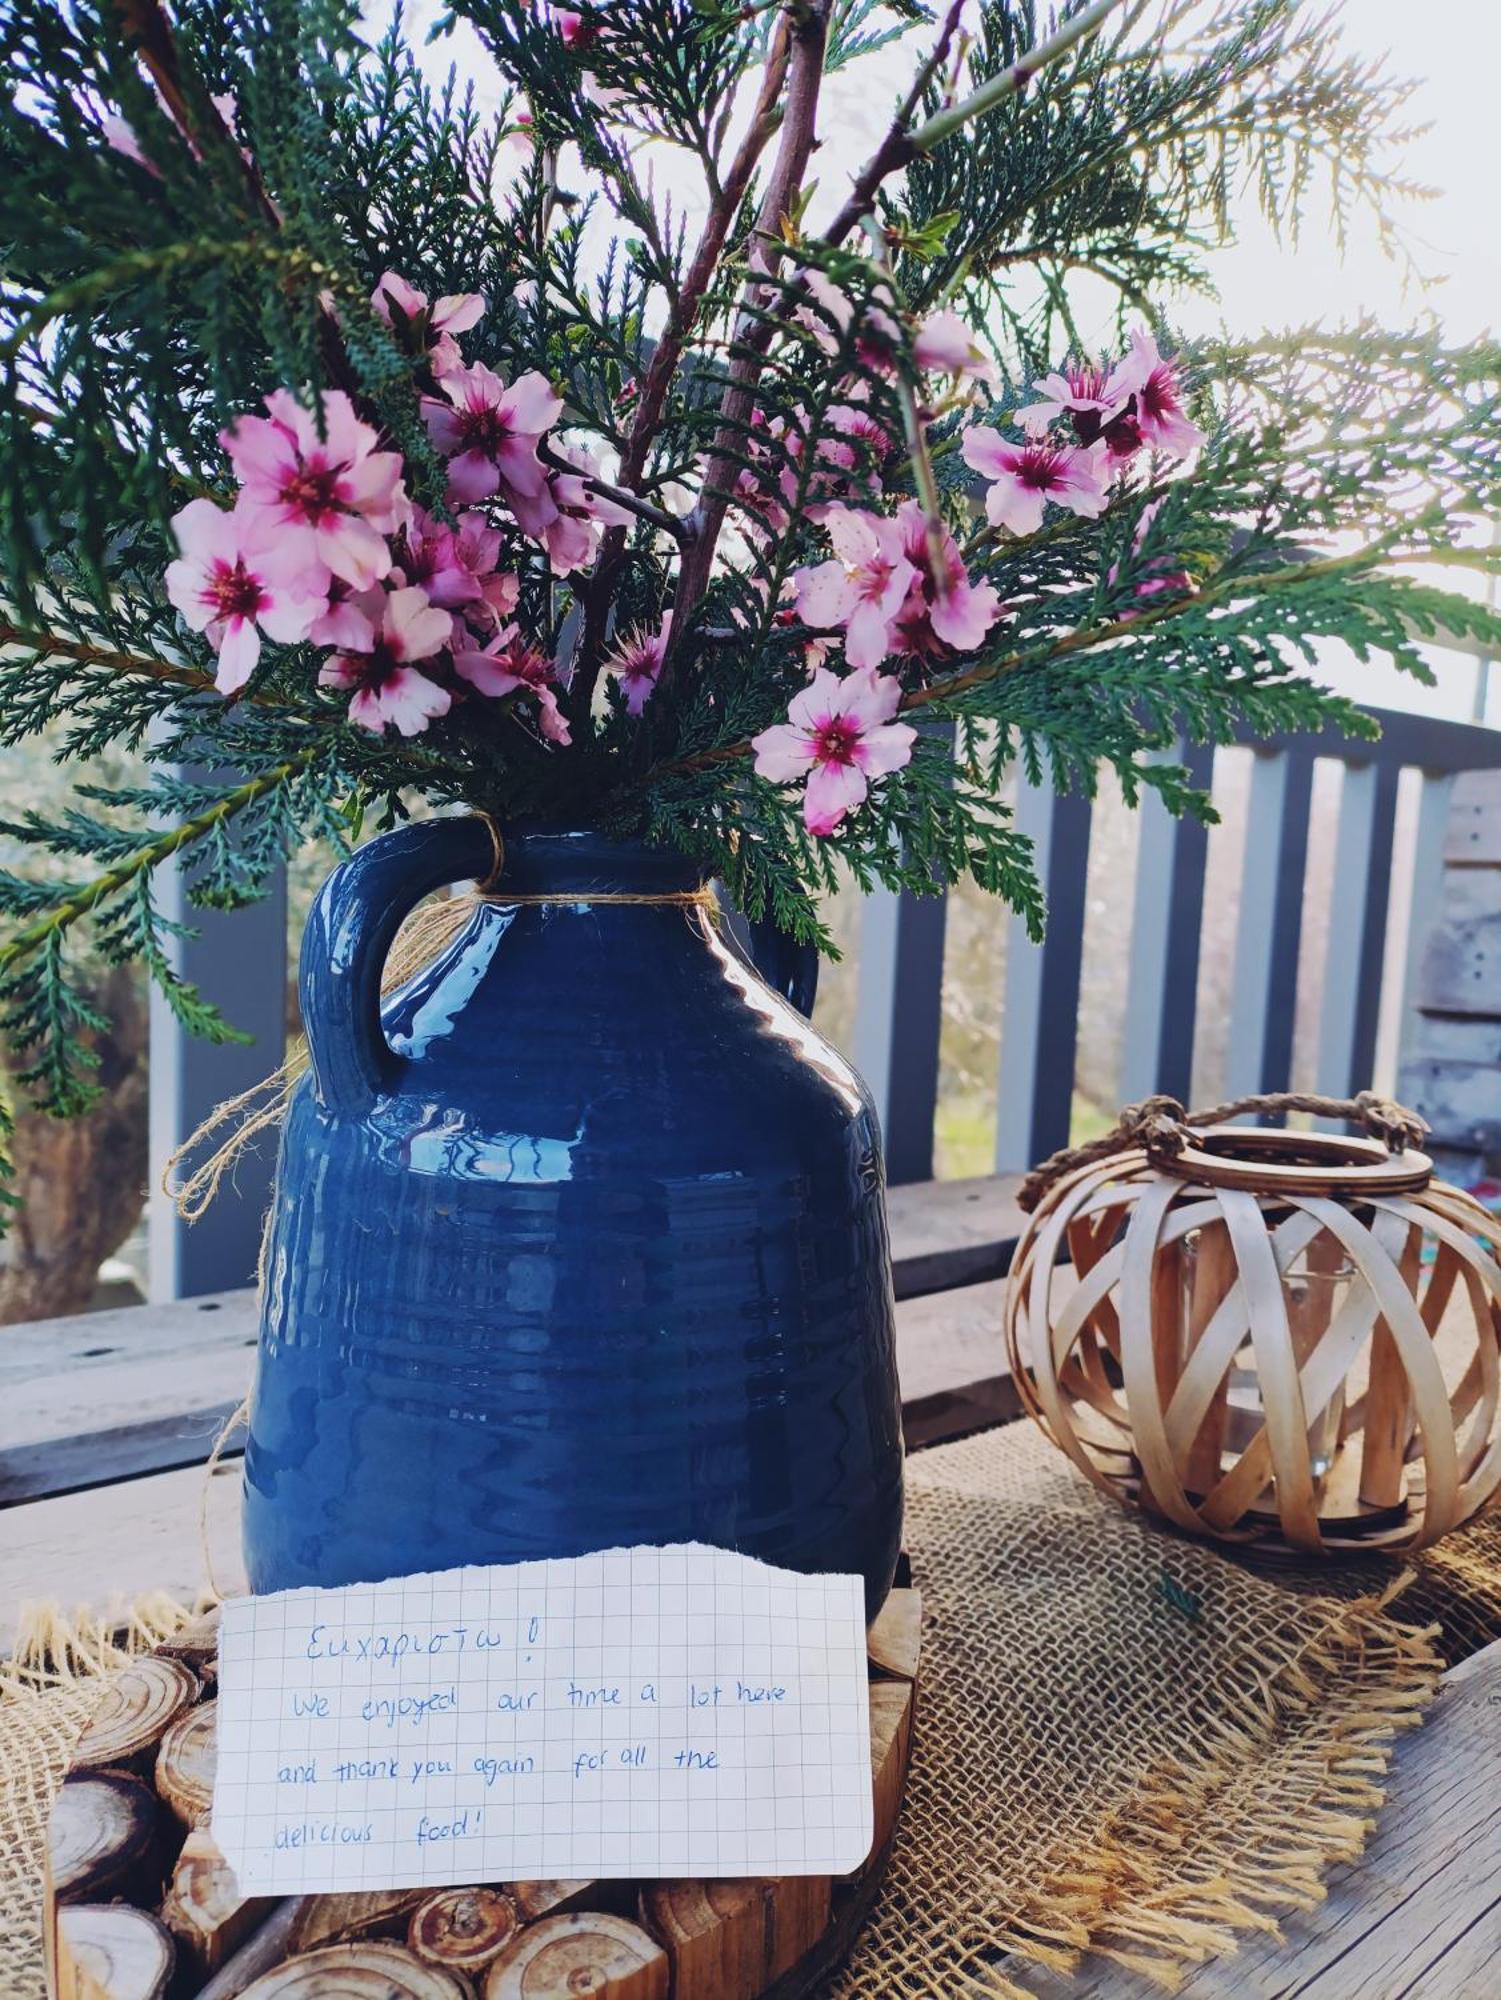 Ευχαριστω!
We enjoyed our time a lot here
and thank you again for all the
delicious food!